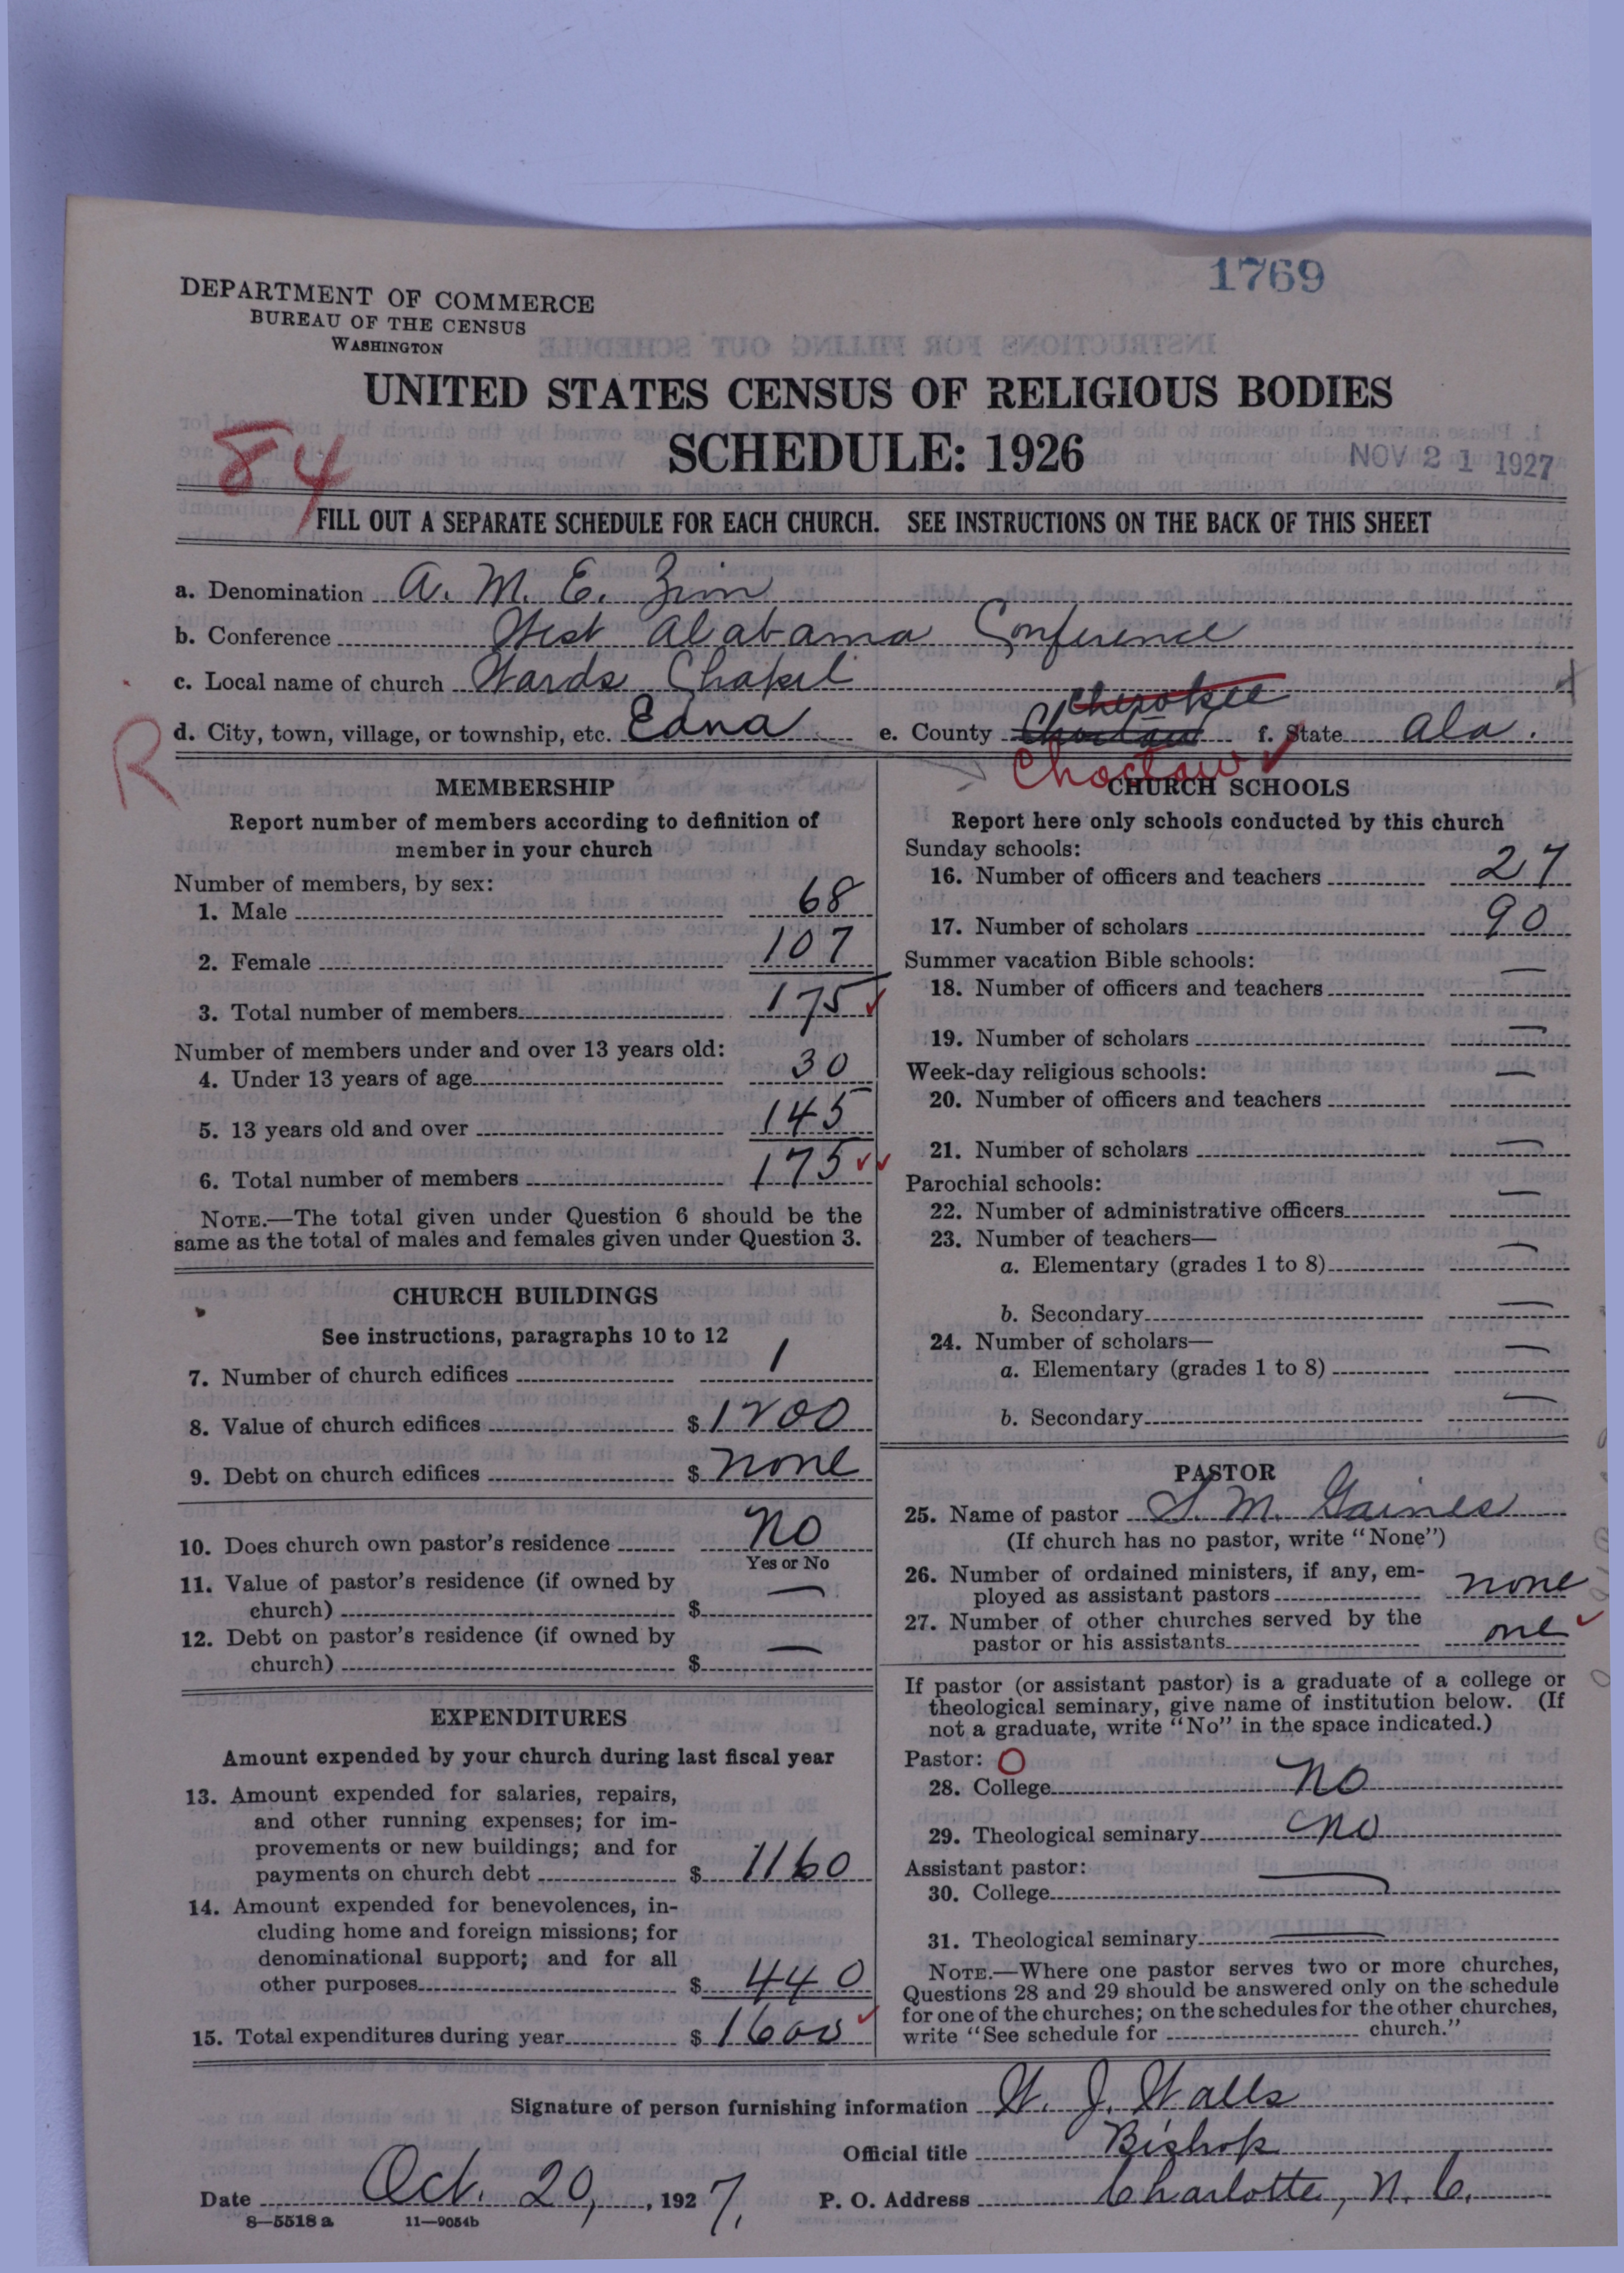 1769
DEPARTMENT OF COMMERCE
BUREAU OF THE CENSUS
WASHINGTON
UNITED STATES CENSUS OF RELIGIOUS BODIES
SCHEDULE: 1926
NOV 21 1927
84
FILL OUT A SEPARATE SCHEDULE FOR EACH CHURCH. SEE INSTRUCTIONS ON THE BACK OF THIS SHEET
a. Denomination A. M. E. Zion
b. Conference West Alabama Conference
c. Local name of church Wards Chapel
Cherokee
d. City, town, village, or township, etc. Edna e. County Choctaw f. State Ala.
R
Choctaw
MEMBERSHIP
Report number of members according to definition of
member in your church
Number of members, by sex:
1. Male 68
2. Female 107
3. Total number of members 175
Number of members under and over 13 years old:
4. Under 13 years of age 30
5. 13 years old and over 145
6. Total number of members 175
NOTE.—The total given under Question 6 should be the
same as the total of males and females given under Question 3.
CHURCH BUILDINGS
See instructions, paragraphs 10 to 12
7. Number of church edifices 1
8. Value of church edifices $ 1200
9. Debt on church edifices $ none
10. Does church own pastor's residence No
Yes or No
11. Value of pastor's residence (if owned by
church) $ —
12. Debt on pastor's residence (if owned by
church) $ —
EXPENDITURES
Amount expended by your church during last fiscal year
13. Amount expended for salaries, repairs,
and other running expenses; for im-
provements or new buildings; and for
payments on church debt $ 1160
14. Amount expended for benevolences, in-
cluding home and foreign missions; for
denominational support; and for all
other purposes $ 440
15. Total expenditures during year $ 1600
CHURCH SCHOOLS
Report here only schools conducted by this church
Sunday schools:
16. Number of officers and teachers 27
17. Number of scholars 90
Summer vacation Bible schools:
18. Number of officers and teachers —
19. Number of scholars —
Week-day religious schools:
20. Number of officers and teachers —
21. Number of scholars —
Parochial schools:
22. Number of administrative officers —
23. Number of teachers—
a. Elementary (grades 1 to 8) —
b. Secondary —
24. Number of scholars—
a. Elementary (grades 1 to 8) —
b. Secondary —
PASTOR
25. Name of pastor S. M. Gaines
(If church has no pastor, write "None")
26. Number of ordained ministers, if any, em-
ployed as assistant pastors none
27. Number of other churches served by the
pastor or his assistants one
If pastor (or assistant pastor) is a graduate of a college or
theological seminary, give name of institution below. (If
not a graduate, write "No" in the space indicated.)
Pastor: O
28. College No
29. Theological seminary No
Assistant pastor:
30. College —
31. Theological seminary —
NOTE.—Where one pastor serves two or more churches,
Questions 28 and 29 should be answered only on the schedule
for one of the churches; on the schedules for the other churches,
write "See schedule for church."
Signature of person furnishing information W. J. Walls
Official title Bishop
Date Oct. 20, 1927. P. O. Address Charlotte, N. C.
8—5518 a 11—9054b